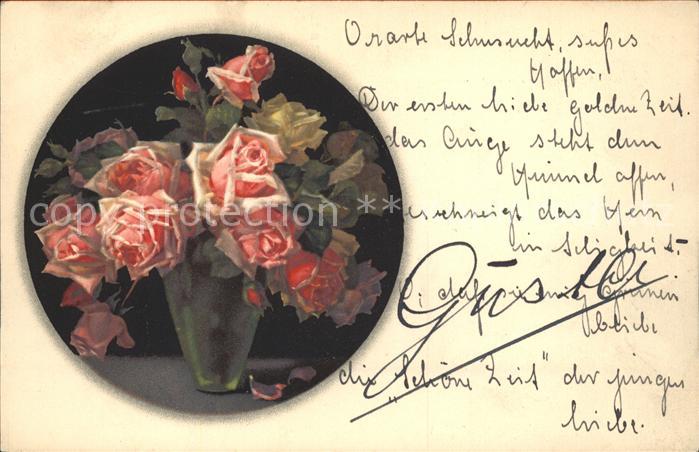 O zarte Sehnsucht, süßes
Hoffen,
Der ersten Liebe goldne Zeit.
das Auge sieht den
Himmel offen,
es schweigt das Herz
in Seligkeit.
O, daß sie ewig grünen
bliebe
die "Schöne Zeit" der jungen
Liebe.
copyright protection